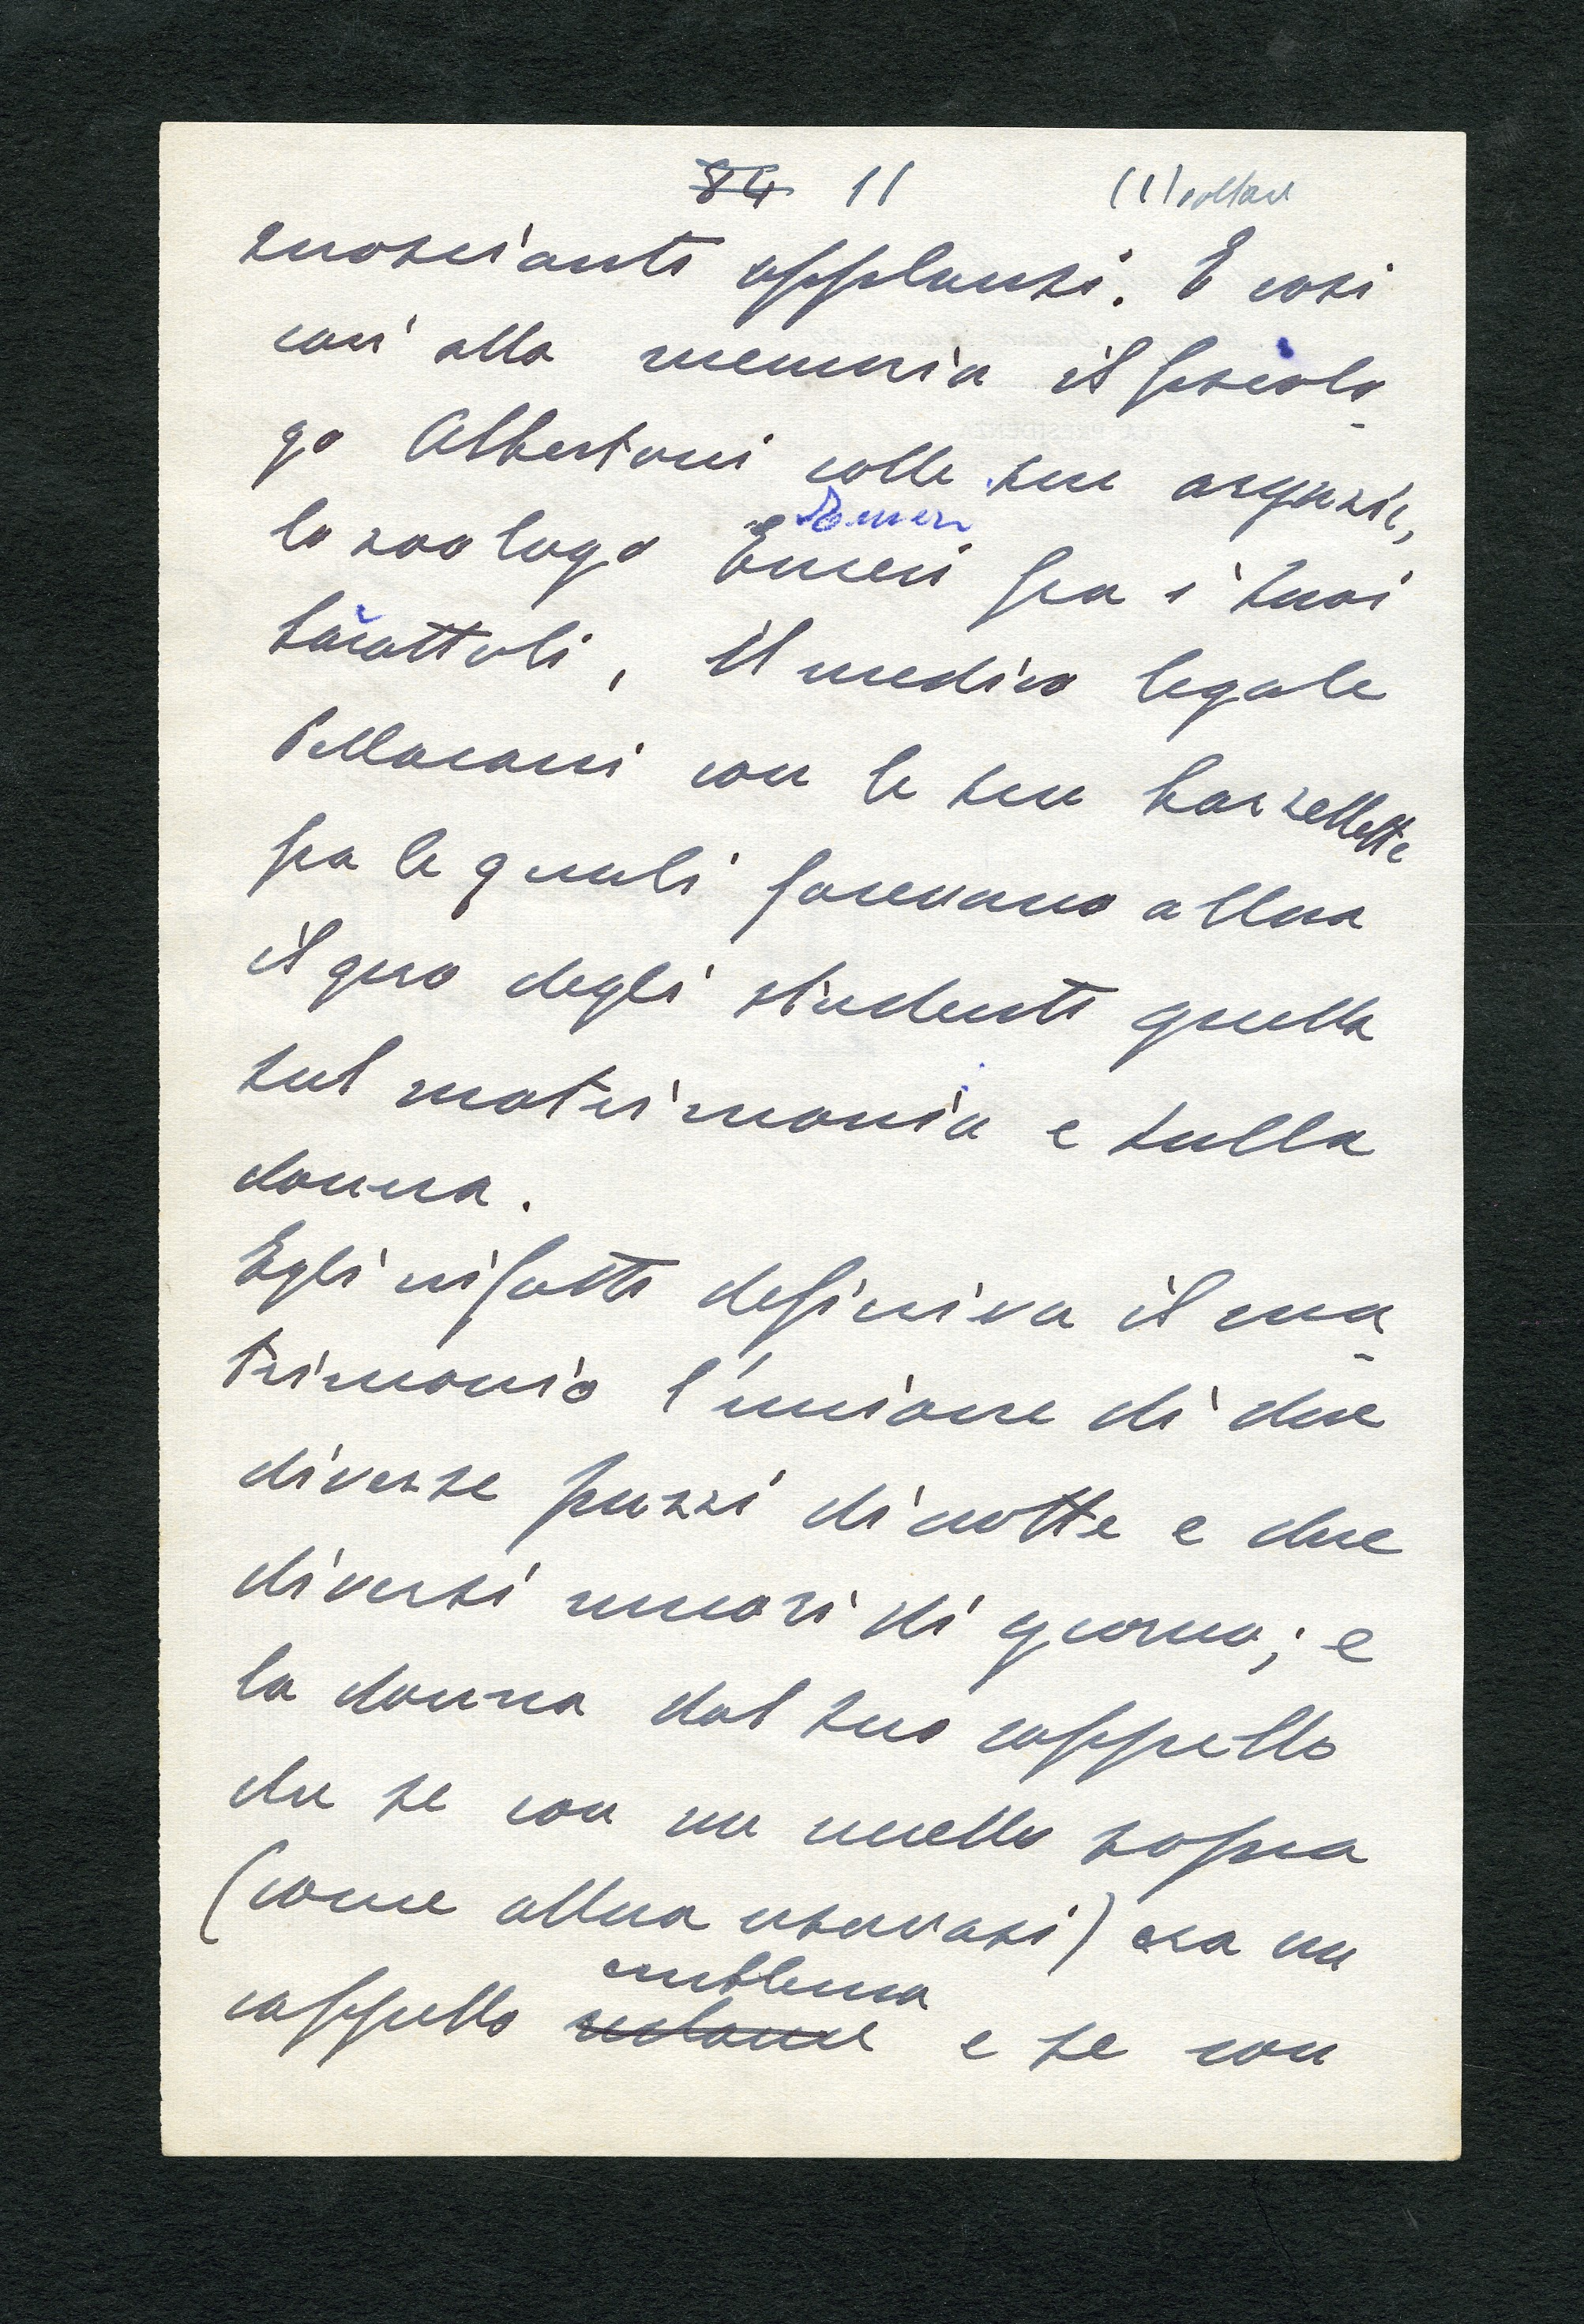 84 11 (1) voltare
scroscianti applausi. E così
cari alla memoria il fisiolo-
go Albertoni colle sue arguzie,
lo zoologo Emeri fra i suoi
barattoli, il medico legale
Pellacani con le sue barzellette
fra le quali facevano allora
il giro degli studenti quella
sul matrimonio e sulla
donna.
Egli infatti definiva il ma-
trimonio l'unione di due
diverse puzzi di notte e due
diversi umori di giorno; e
la donna dal suo cappello
che se con un uccello sopra
(come allora usavasi) era un
emblema
cappello reclame e se con